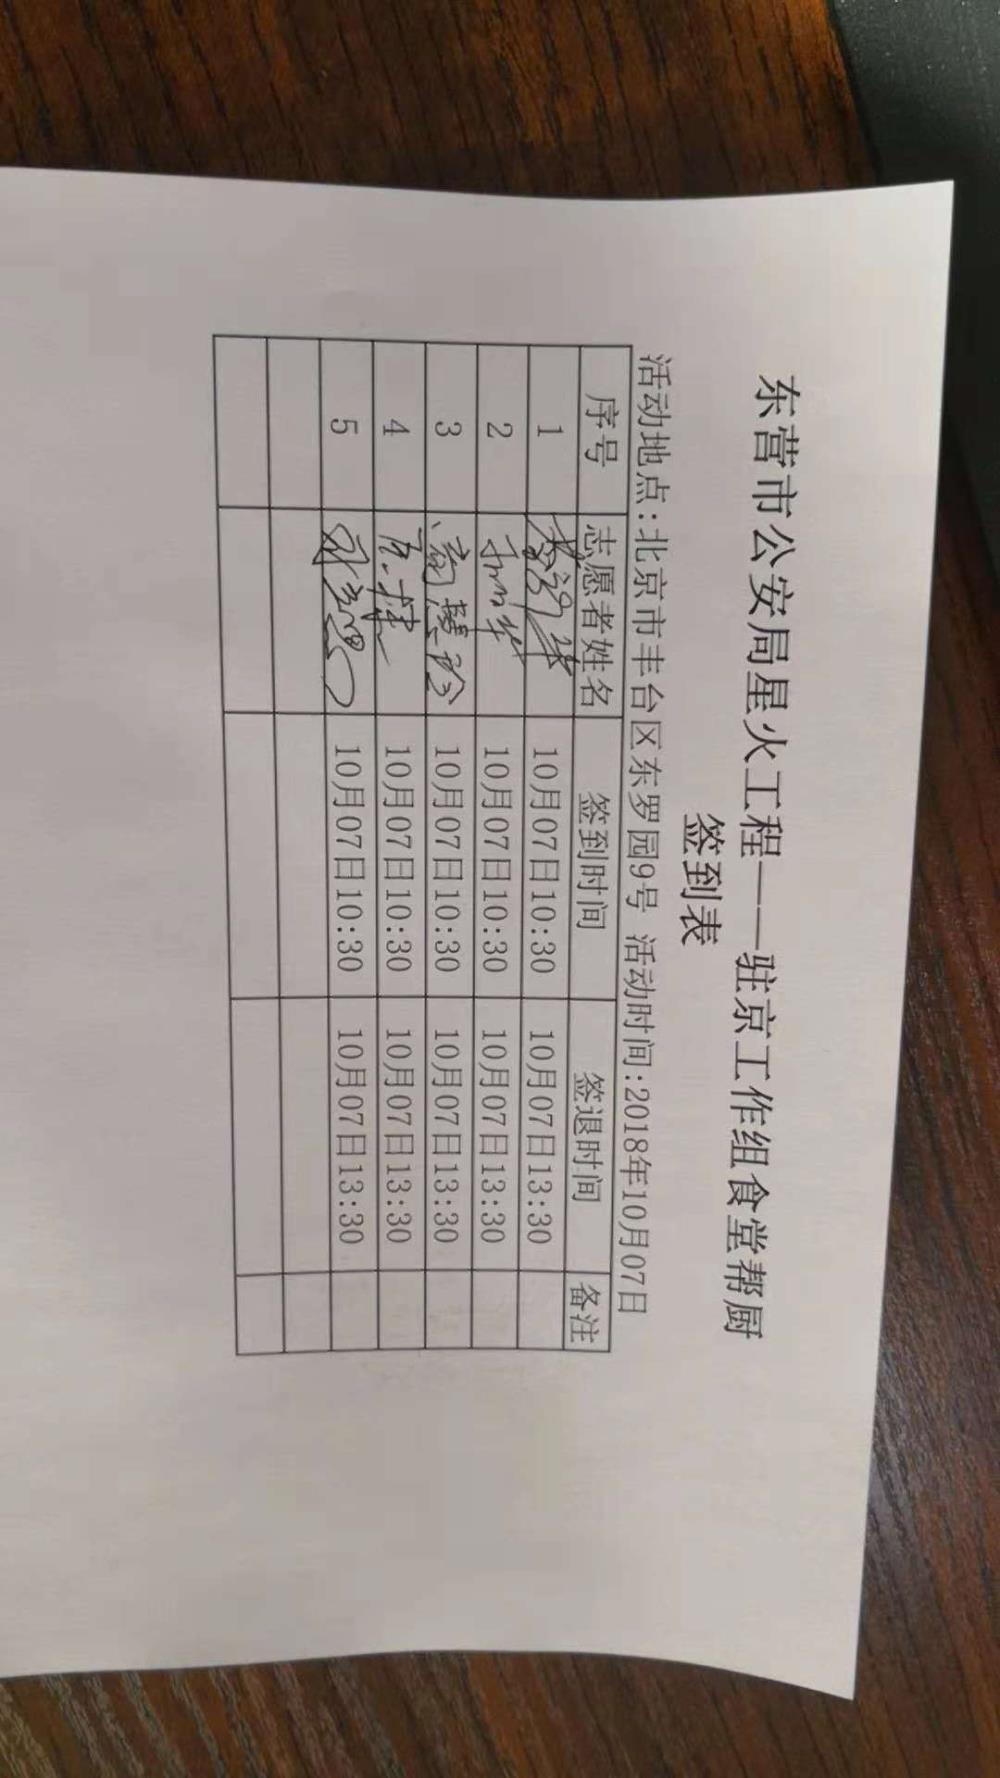 东营市公安局星火工程——驻京工作组食堂帮厨
签到表
活动地点:北京市丰台区东罗园9号 活动时间:2018年10月07日
序号 志愿者姓名 签到时间 签退时间 备注
1 10月07日10:30 10月07日13:30
2 10月07日10:30 10月07日13:30
3 10月07日10:30 10月07日13:30
4 10月07日10:30 10月07日13:30
5 10月07日10:30 10月07日13:30